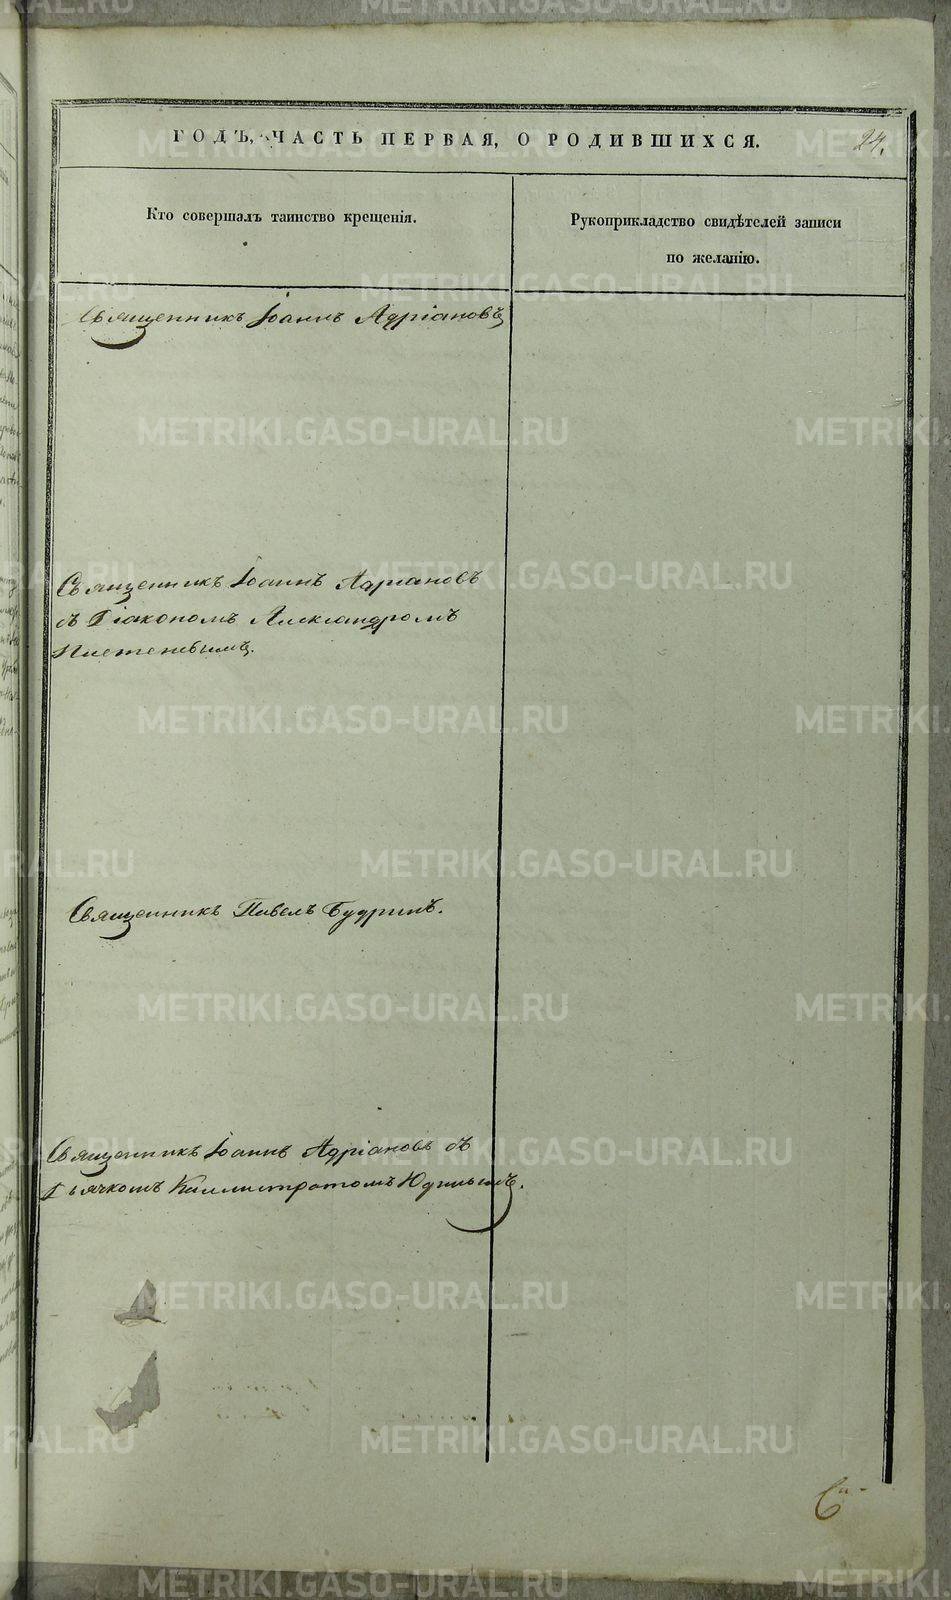 ГОДЪ, ЧАСТЬ ПЕРВАЯ, О РОДИВШИХСЯ.
24.
Кто совершалъ таинство крещенія.
Рукоприкладство свидѣтелей записи
по желанію.
Священникъ Іоаннъ Адріановъ
Священникъ Іоаннъ Адріановъ
съ Діакономъ Александромъ
Священникъ Павелъ Будринъ.
Священникъ Іоаннъ Адріановъ съ
Дьячкомъ Каллистратомъ Юдинымъ.
METRIKI.GASO-URAL.RU